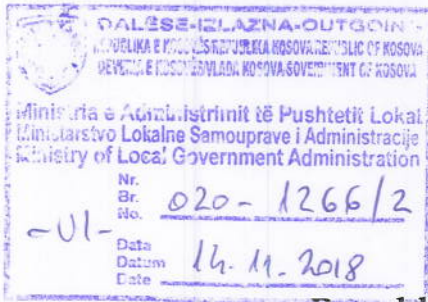 DALËSE-IZLAZNA-OUTGOING
REPUBLIKA E KOSOVËS/REPUBLIKA KOSOVA/REPUBLIC OF KOSOVA
QEVERIA E KOSOVËS/VLADA KOSOVA/GOVERNMENT OF KOSOVA
Ministria e Administrimit të Pushtetit Lokal
Ministarstvo Lokalne Samouprave i Administracije
Ministry of Local Government Administration
Nr.
Br.
No. 020-1266/2
-01-
Data
Datum
Date 14.11.2018